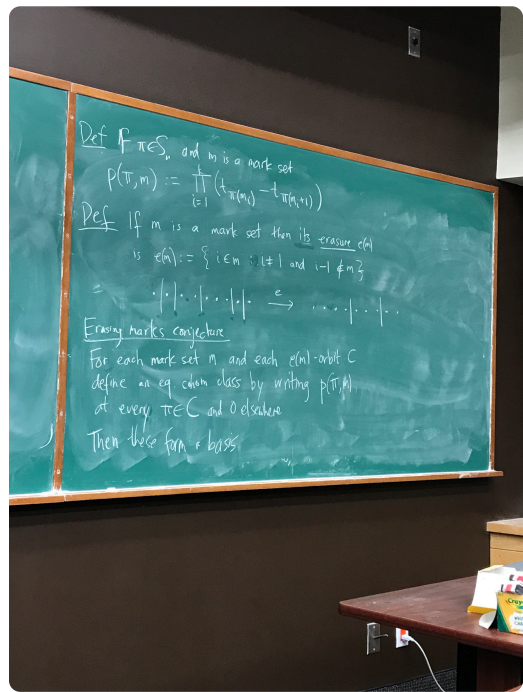 Def If π∈Sₙ and m is a mark set
p(π,m) := ∏ᵢ₌₁ (t_π(mᵢ) − t_π(mᵢ+1))
Def If m is a mark set then its erasure e(m)
is e(m) := { i∈m : i≠1 and i−1∉m }
·|·|··|···|·|· e→ ·····|··|··
Erasing marks conjecture
For each mark set m and each e(m)-orbit C
define an eq cohom class by writing p(π,m)
at every π∈C and 0 elsewhere
Then these form a basis
Crayola